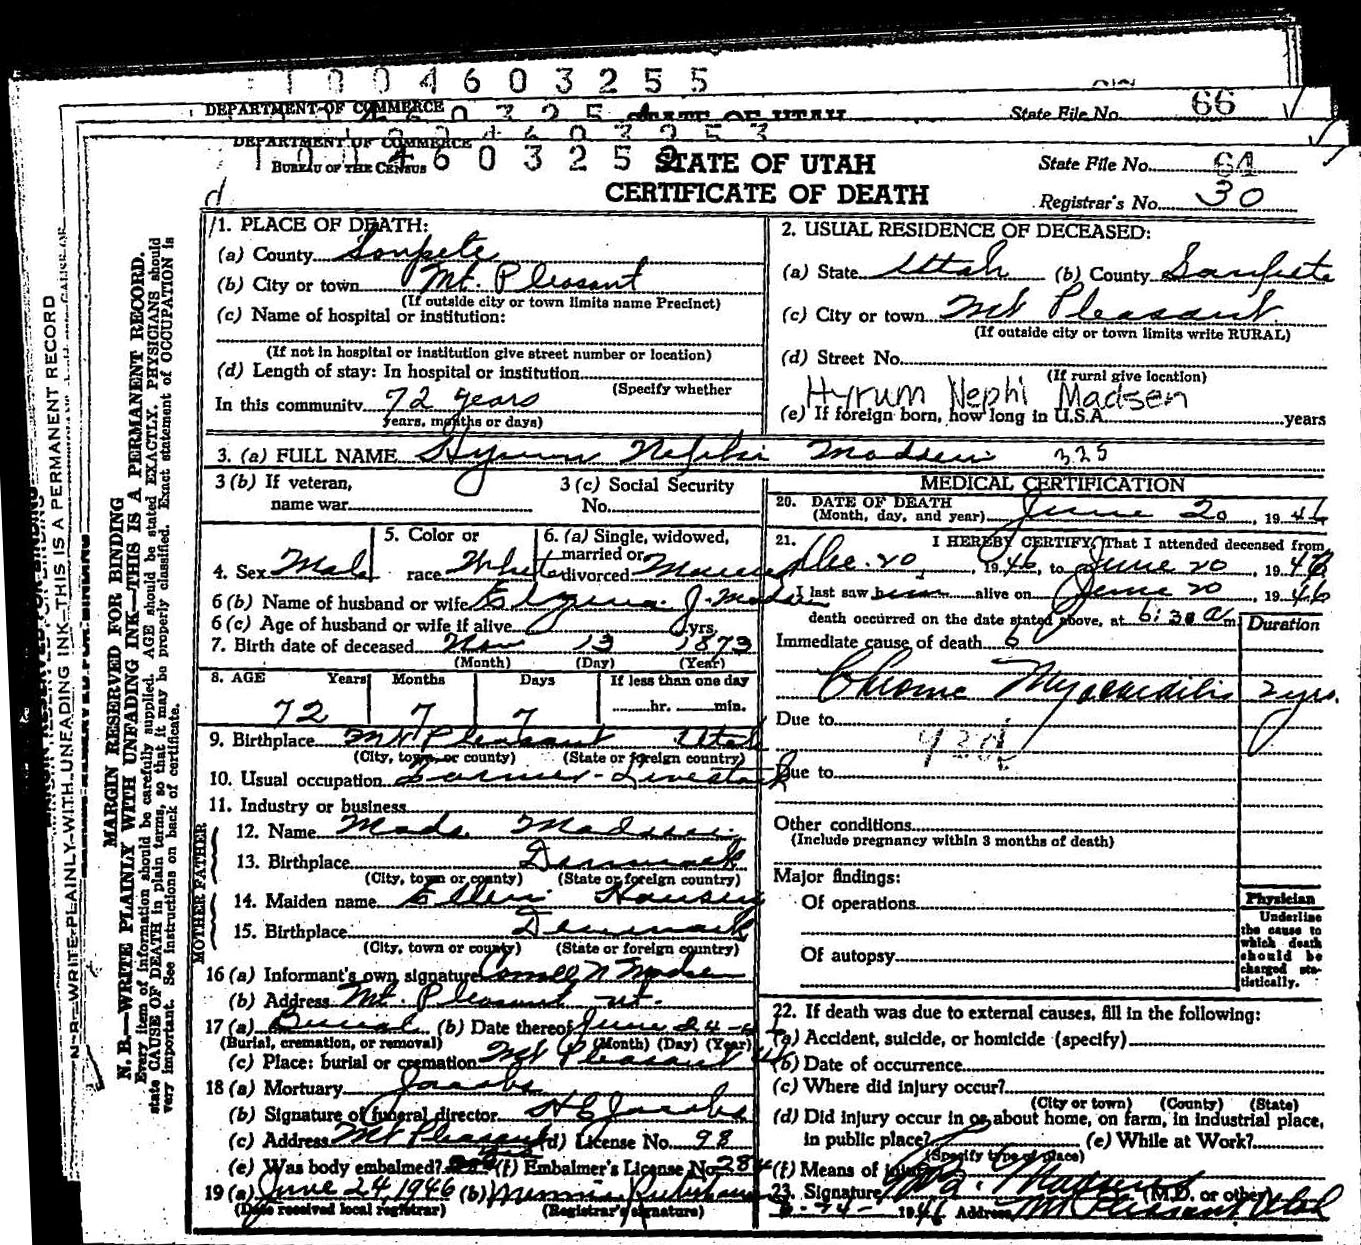 1004603255
DEPARTMENT OF COMMERCE
STATE OF UTAH
State File No. 66
DEPARTMENT OF COMMERCE
BUREAU OF THE CENSUS
STATE OF UTAH
CERTIFICATE OF DEATH
State File No. 64
Registrar's No. 30
1. PLACE OF DEATH:
(a) County Sanpete
(b) City or town Mt. Pleasant
(If outside city or town limits name Precinct)
(c) Name of hospital or institution:
(If not in hospital or institution give street number or location)
(d) Length of stay: In hospital or institution
(Specify whether
In this community 72 years
years, months or days)
2. USUAL RESIDENCE OF DECEASED:
(a) State Utah (b) County Sanpete
(c) City or town Mt Pleasant
(If outside city or town limits write RURAL)
(d) Street No.
(If rural give location)
Hyrum Nephi Madsen
(e) If foreign born, how long in U.S.A. years
3. (a) FULL NAME Hyrum Nephi Madsen 325
3 (b) If veteran,
name war
3 (c) Social Security
No.
4. Sex Male
5. Color or
race White
6. (a) Single, widowed,
married or
divorced Married
6 (b) Name of husband or wife J. Madsen
6 (c) Age of husband or wife if alive yrs.
7. Birth date of deceased Nov 13 1873
(Month) (Day) (Year)
8. AGE Years Months Days If less than one day
72 7 7 hr. min.
9. Birthplace Mt Pleasant Utah
(City, town, or county) (State or foreign country)
10. Usual occupation Farmer - Livestock
11. Industry or business
FATHER
12. Name Mads Madsen
13. Birthplace Denmark
(City, town or county) (State or foreign country)
MOTHER
14. Maiden name Ellen Hansen
15. Birthplace Denmark
(City, town or county) (State or foreign country)
16 (a) Informant's own signature N Madsen
(b) Address Mt. Pleasant Ut.
17 (a) Burial (b) Date thereof June 24-
(Burial, cremation, or removal) (Month) (Day) (Year)
(c) Place: burial or cremation Mt Pleasant
18 (a) Mortuary Jacobs
(b) Signature of funeral director H E Jacobs
(c) Address Mt Pleasant (d) License No. 98
(e) Was body embalmed? yes (f) Embalmer's License No. 284
19 (a) June 24, 1946 (b) Minnie
(Date received local registrar) (Registrar's signature)
MEDICAL CERTIFICATION
20. DATE OF DEATH
(Month, day, and year) June 20, 1946
21. I HEREBY CERTIFY, That I attended deceased from
Dec. 20, 1946, to June 20, 1946
I last saw him alive on June 20 1946
death occurred on the date stated above, at 6:30 a m
Immediate cause of death
Duration
Chronic Myocarditis 2 yrs.
Due to
93d
Due to
Other conditions
(Include pregnancy within 3 months of death)
Major findings:
Of operations
Of autopsy
Physician
Underline
the cause to
which death
should be
charged sta-
tistically.
22. If death was due to external causes, fill in the following:
(a) Accident, suicide, or homicide (specify)
(b) Date of occurrence
(c) Where did injury occur?
(City or town) (County) (State)
(d) Did injury occur in or about home, on farm, in industrial place,
in public place? (e) While at Work?
(Specify type of place)
(f) Means of injury
23. Signature (M.D. or other)
6-24- 1946 Address Mt Pleasant Utah
MARGIN RESERVED FOR BINDING
N. B.—WRITE PLAINLY WITH UNFADING INK—THIS IS A PERMANENT RECORD.
Every item of information should be carefully supplied. AGE should be stated EXACTLY. PHYSICIANS should
state CAUSE OF DEATH in plain terms, so that it may be properly classified. Exact statement of OCCUPATION is
very important. See instructions on back of certificate.
N. B.—WRITE PLAINLY WITH UNFADING INK—THIS IS A PERMANENT RECORD